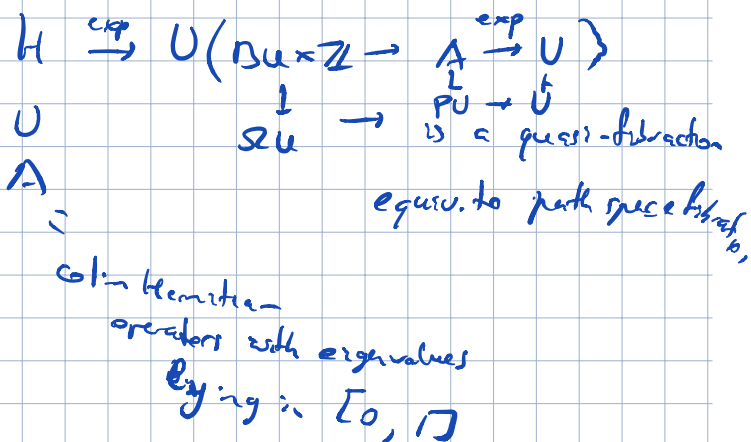 H exp→ U (BU × ℤ → A exp→ U)
U ↓ ↓ ↓
ΩU → PU → U
A is a quasi-fibration
:= equiv. to path space fibration,
colim Hermitian
operators with eigenvalues
lying in [0, 1]